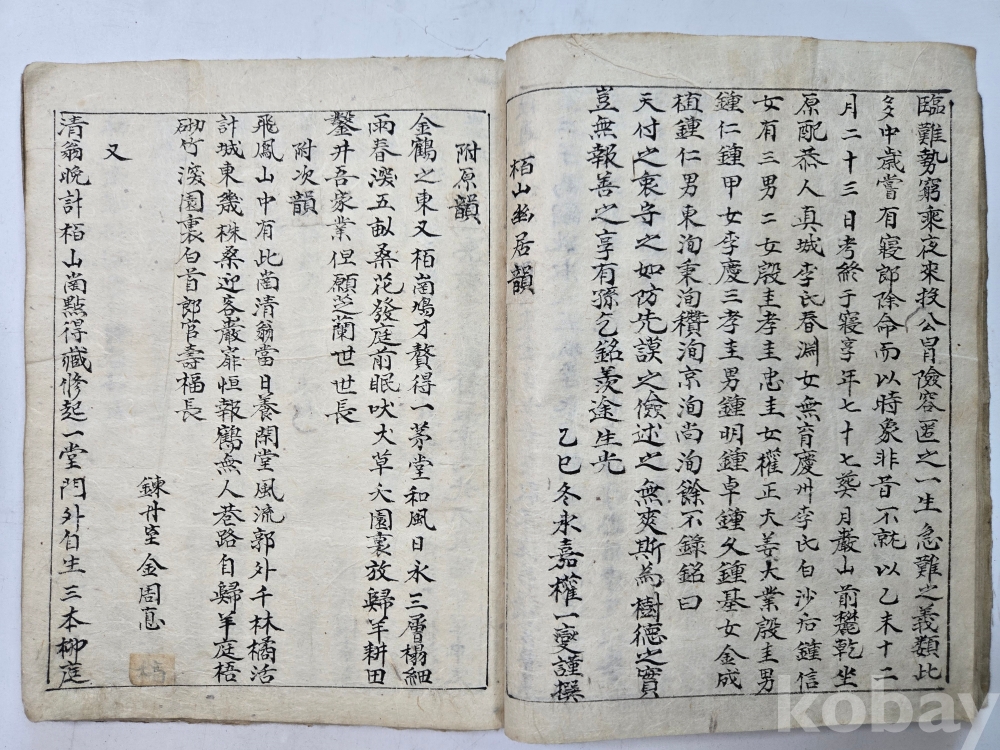 臨難勢窮乘夜來投公冒險容匿之一生急難之義類比
多中歲嘗有寢郎除命而以時象非昔不就以乙未十二
月二十三日考終于寢享年七十七葬月巖山前麓乾坐
原配恭人真城李氏春淵女無育慶州李氏白沙后鍾信
女有三男二女殷圭孝圭忠圭女權正大姜大業殷圭男
鍾仁鍾甲女李慶三孝圭男鍾明鍾卓鍾文鍾基女金成
植鍾仁男東洵秉洵穳洵京洵尚洵餘不錄銘曰
天付之衷守之如防先謨之儉述之無爽斯為樹德之實
豈無報善之享有孫乞銘羨途生光
乙巳冬永嘉權一燮謹撰
栢山幽居韻
附原韻
金鶴之東又栢崗鳩才贅得一茅堂和風日永三層榻細
雨春深五畝桑花發庭前眠吠犬草深園裏放歸羊耕田
鑿井吾家業但願芝蘭世世長
附次韻
飛鳳山中有此崗清翁當日養閑堂風流郭外千林橘活
計城東幾株桑迎客巖扉恒報鶴無人巷路自歸羊庭梧
砌竹深園裏白首郎官壽福長
鍊丹室金周
又
清翁晩計栢山崗點得藏修起一堂門外自生三本柳庭
kobay